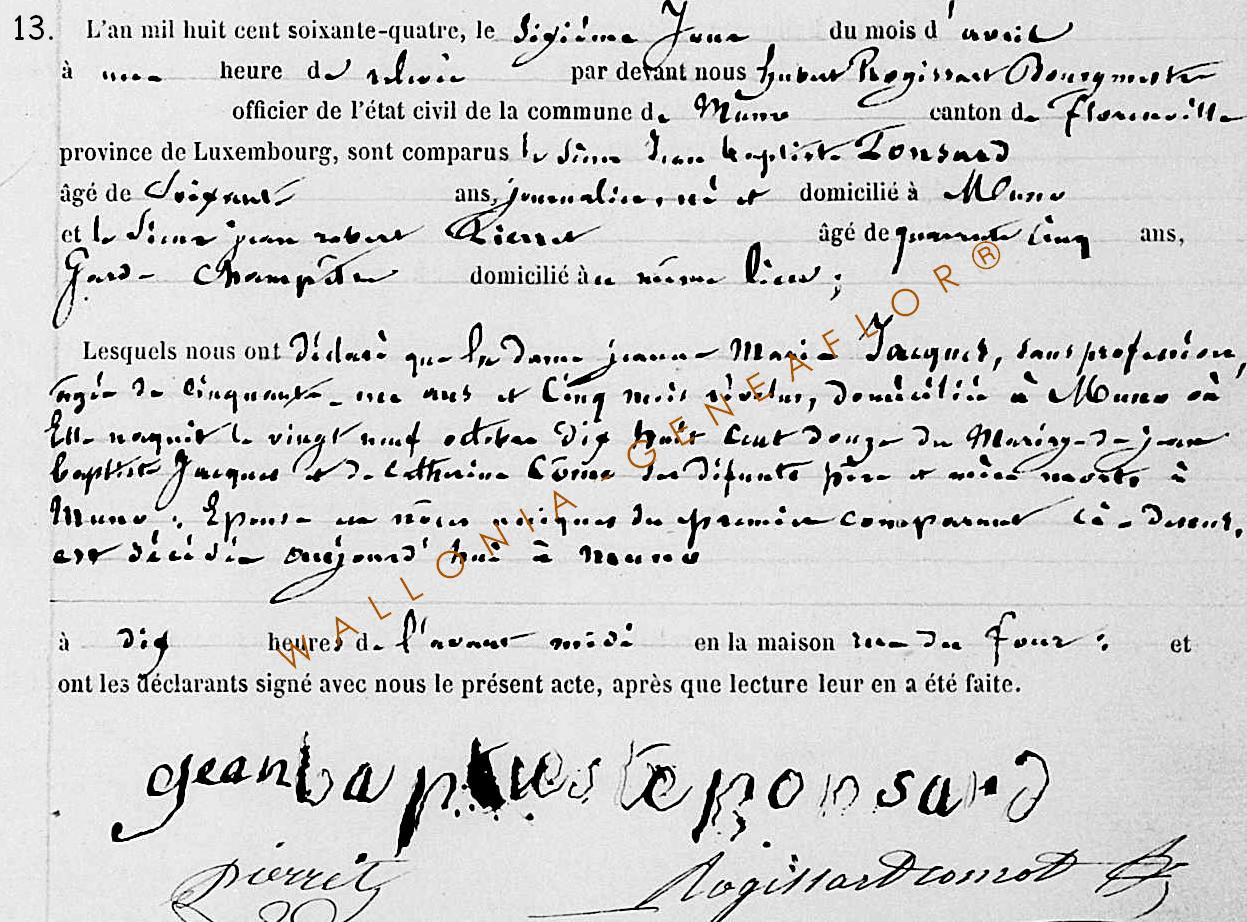 13. L'an mil huit cent soixante-quatre, le sixième Jour du mois d'avril
à une heure de relevée par devant nous hubert Rogissart Bourgmestre
officier de l'état civil de la commune de Muno canton de Florenville
province de Luxembourg, sont comparus le Sieur Jean baptiste Ponsard
âgé de Soixante ans, journalier, né et domicilié à Muno
et le Sieur jean robert Pierret âgé de quarante Cinq ans,
Garde Champêtre domicilié au même lieu ;
Lesquels nous ont Déclaré que la Dame jeanne Marie Jacques, sans profession,
agée de Cinquante une ans et Cinq mois révolus, Domiciliée à Muno où
Elle naquit le vingt neuf octobre Dix huit Cent Douze du Mariage de jean
baptiste Jacques et de Catherine les Défunts père et mère morts à
Muno ; Epouse en noces du premier comparant Cà Dessus,
est décédée aujourd'hui à Muno
à Dix heures de l'avant midi en la maison rue du four ; et
ont les déclarants signé avec nous le présent acte, après que lecture leur en a été faite.
jean baptieste ponsard
Pierret Rogissart
WALLONIA GENEAFLOR®